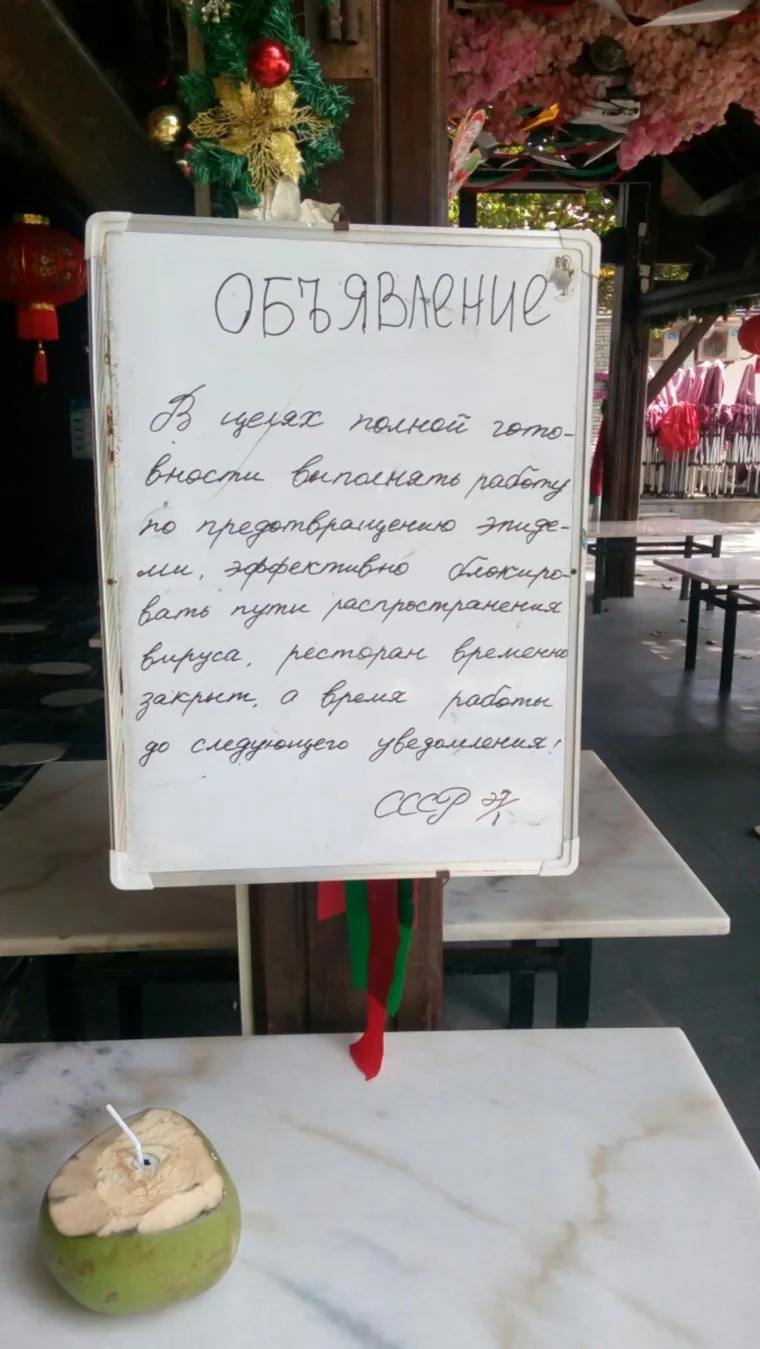 ОБЪЯВЛЕНИЕ
В целях полной гото-
вности выполнять работу
по предотвращению эпиде-
ми, эффективно блокиро-
вать пути распространения
вируса, ресторан временно
закрыт, а время работы
до следующего уведомления!
СССР 27/1